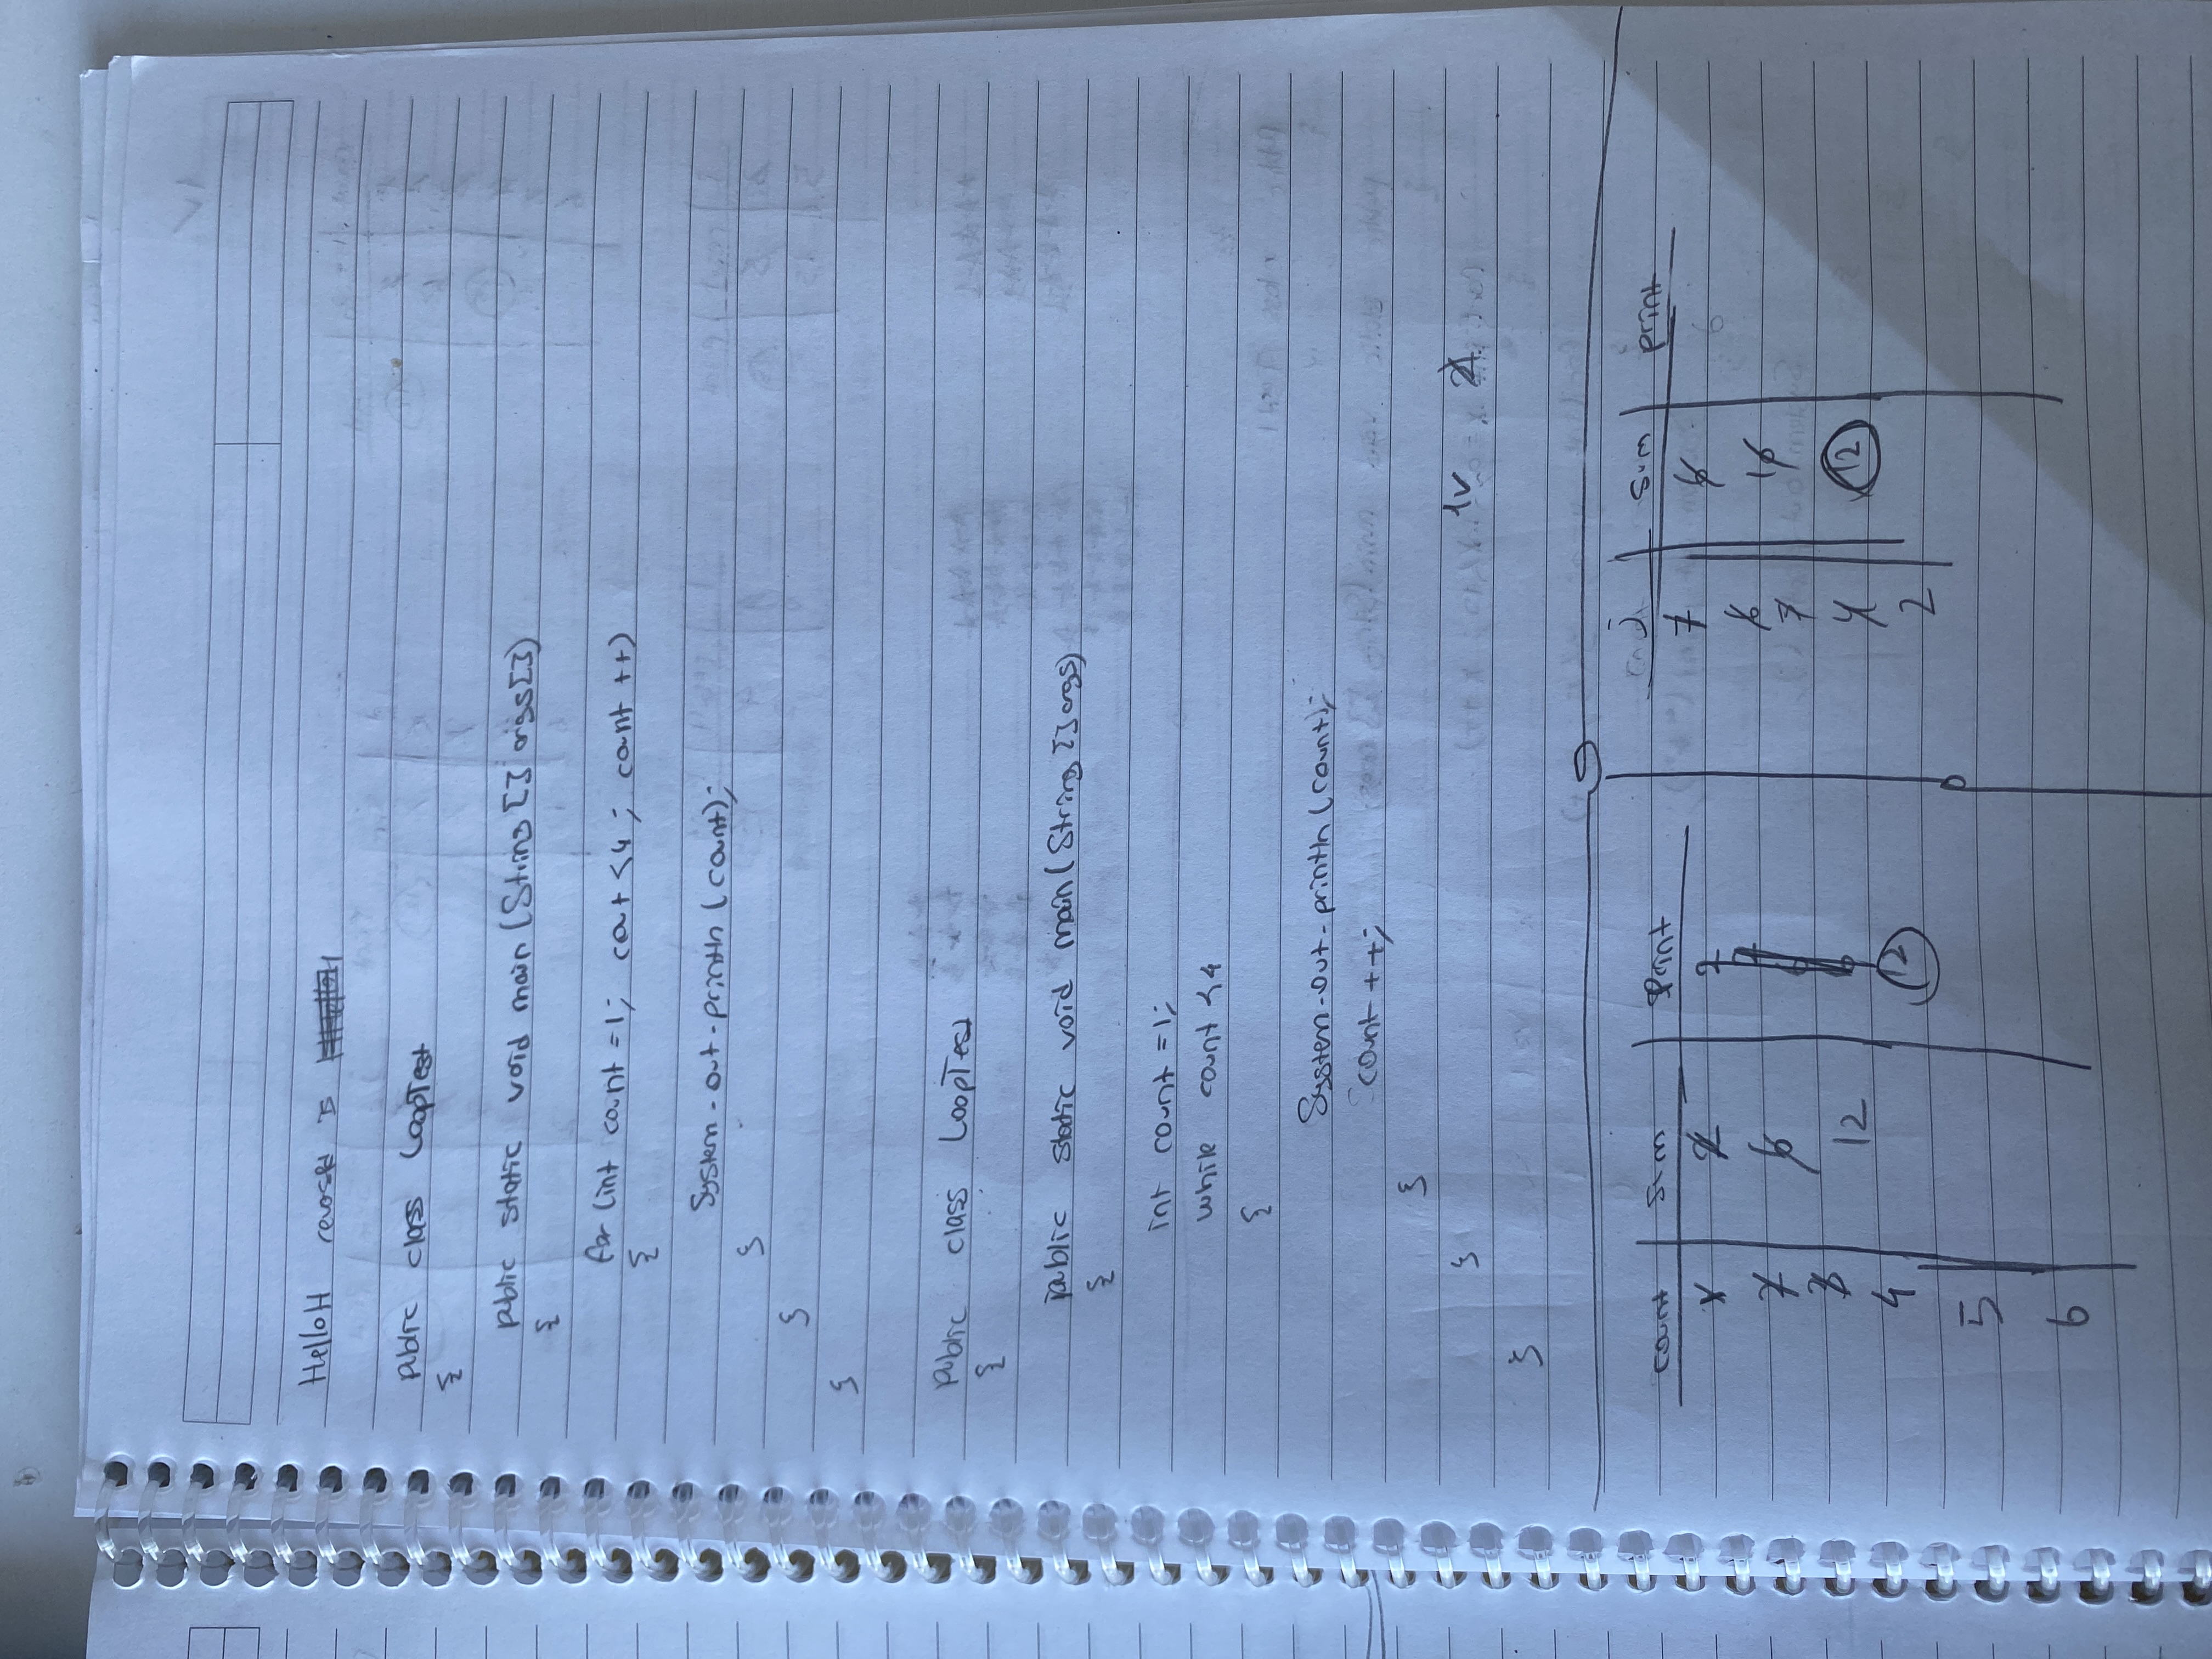 HelloH is
public class LoopTest
{
public static void main (String [] args[])
{
for (int count =1; cout <4 ; count ++)
{
System-out-println (count);
}
}
}
public class LoopTest
{
public static void main (String [] args)
{
int count =1;
while count <4
{
System-out-println (count);
count ++;
}
}
}
1v
count sum Print
2 2
6
3
12
4 12
5
6
j sum print
7 6
6
7
12
2